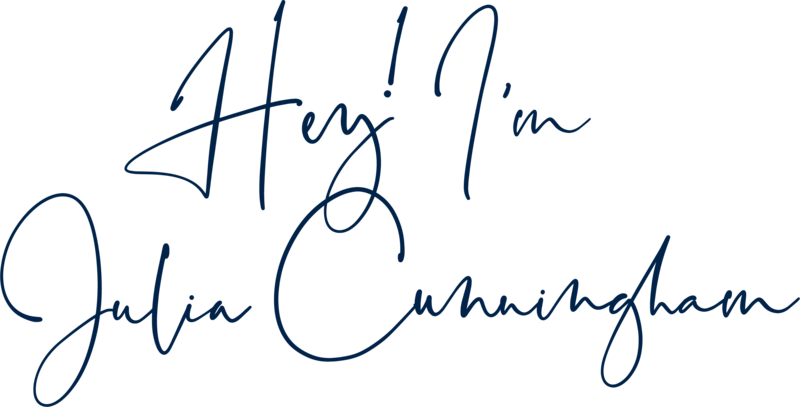 Hey! I'm
Julia Cunningham